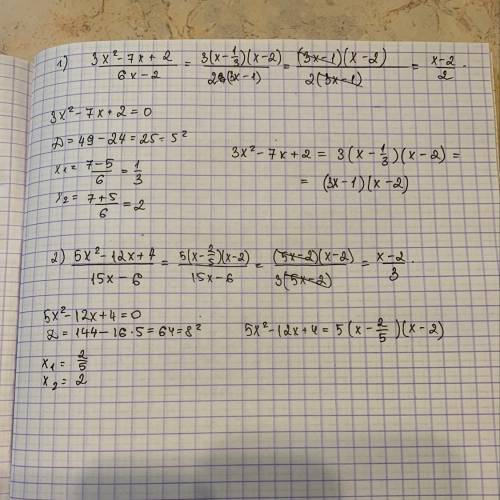 1) (3x²-7x+2)/(6x-2) = 3(x-1/3)(x-2)/2(3x-1) = (3x-1)(x-2)/2(3x-1) = (x-2)/2.
3x²-7x+2=0
D=49-24=25=5²
x₁=(7-5)/6=1/3
x₂=(7+5)/6=2
3x²-7x+2=3(x-1/3)(x-2)=
=(3x-1)(x-2)
2) (5x²-12x+4)/(15x-6) = 5(x-2/5)(x-2)/(15x-6) = (5x-2)(x-2)/3(5x-2) = (x-2)/3
5x²-12x+4=0
D=144-16·5=64=8²
x₁=2/5
x₂=2
5x²-12x+4=5(x-2/5)(x-2)